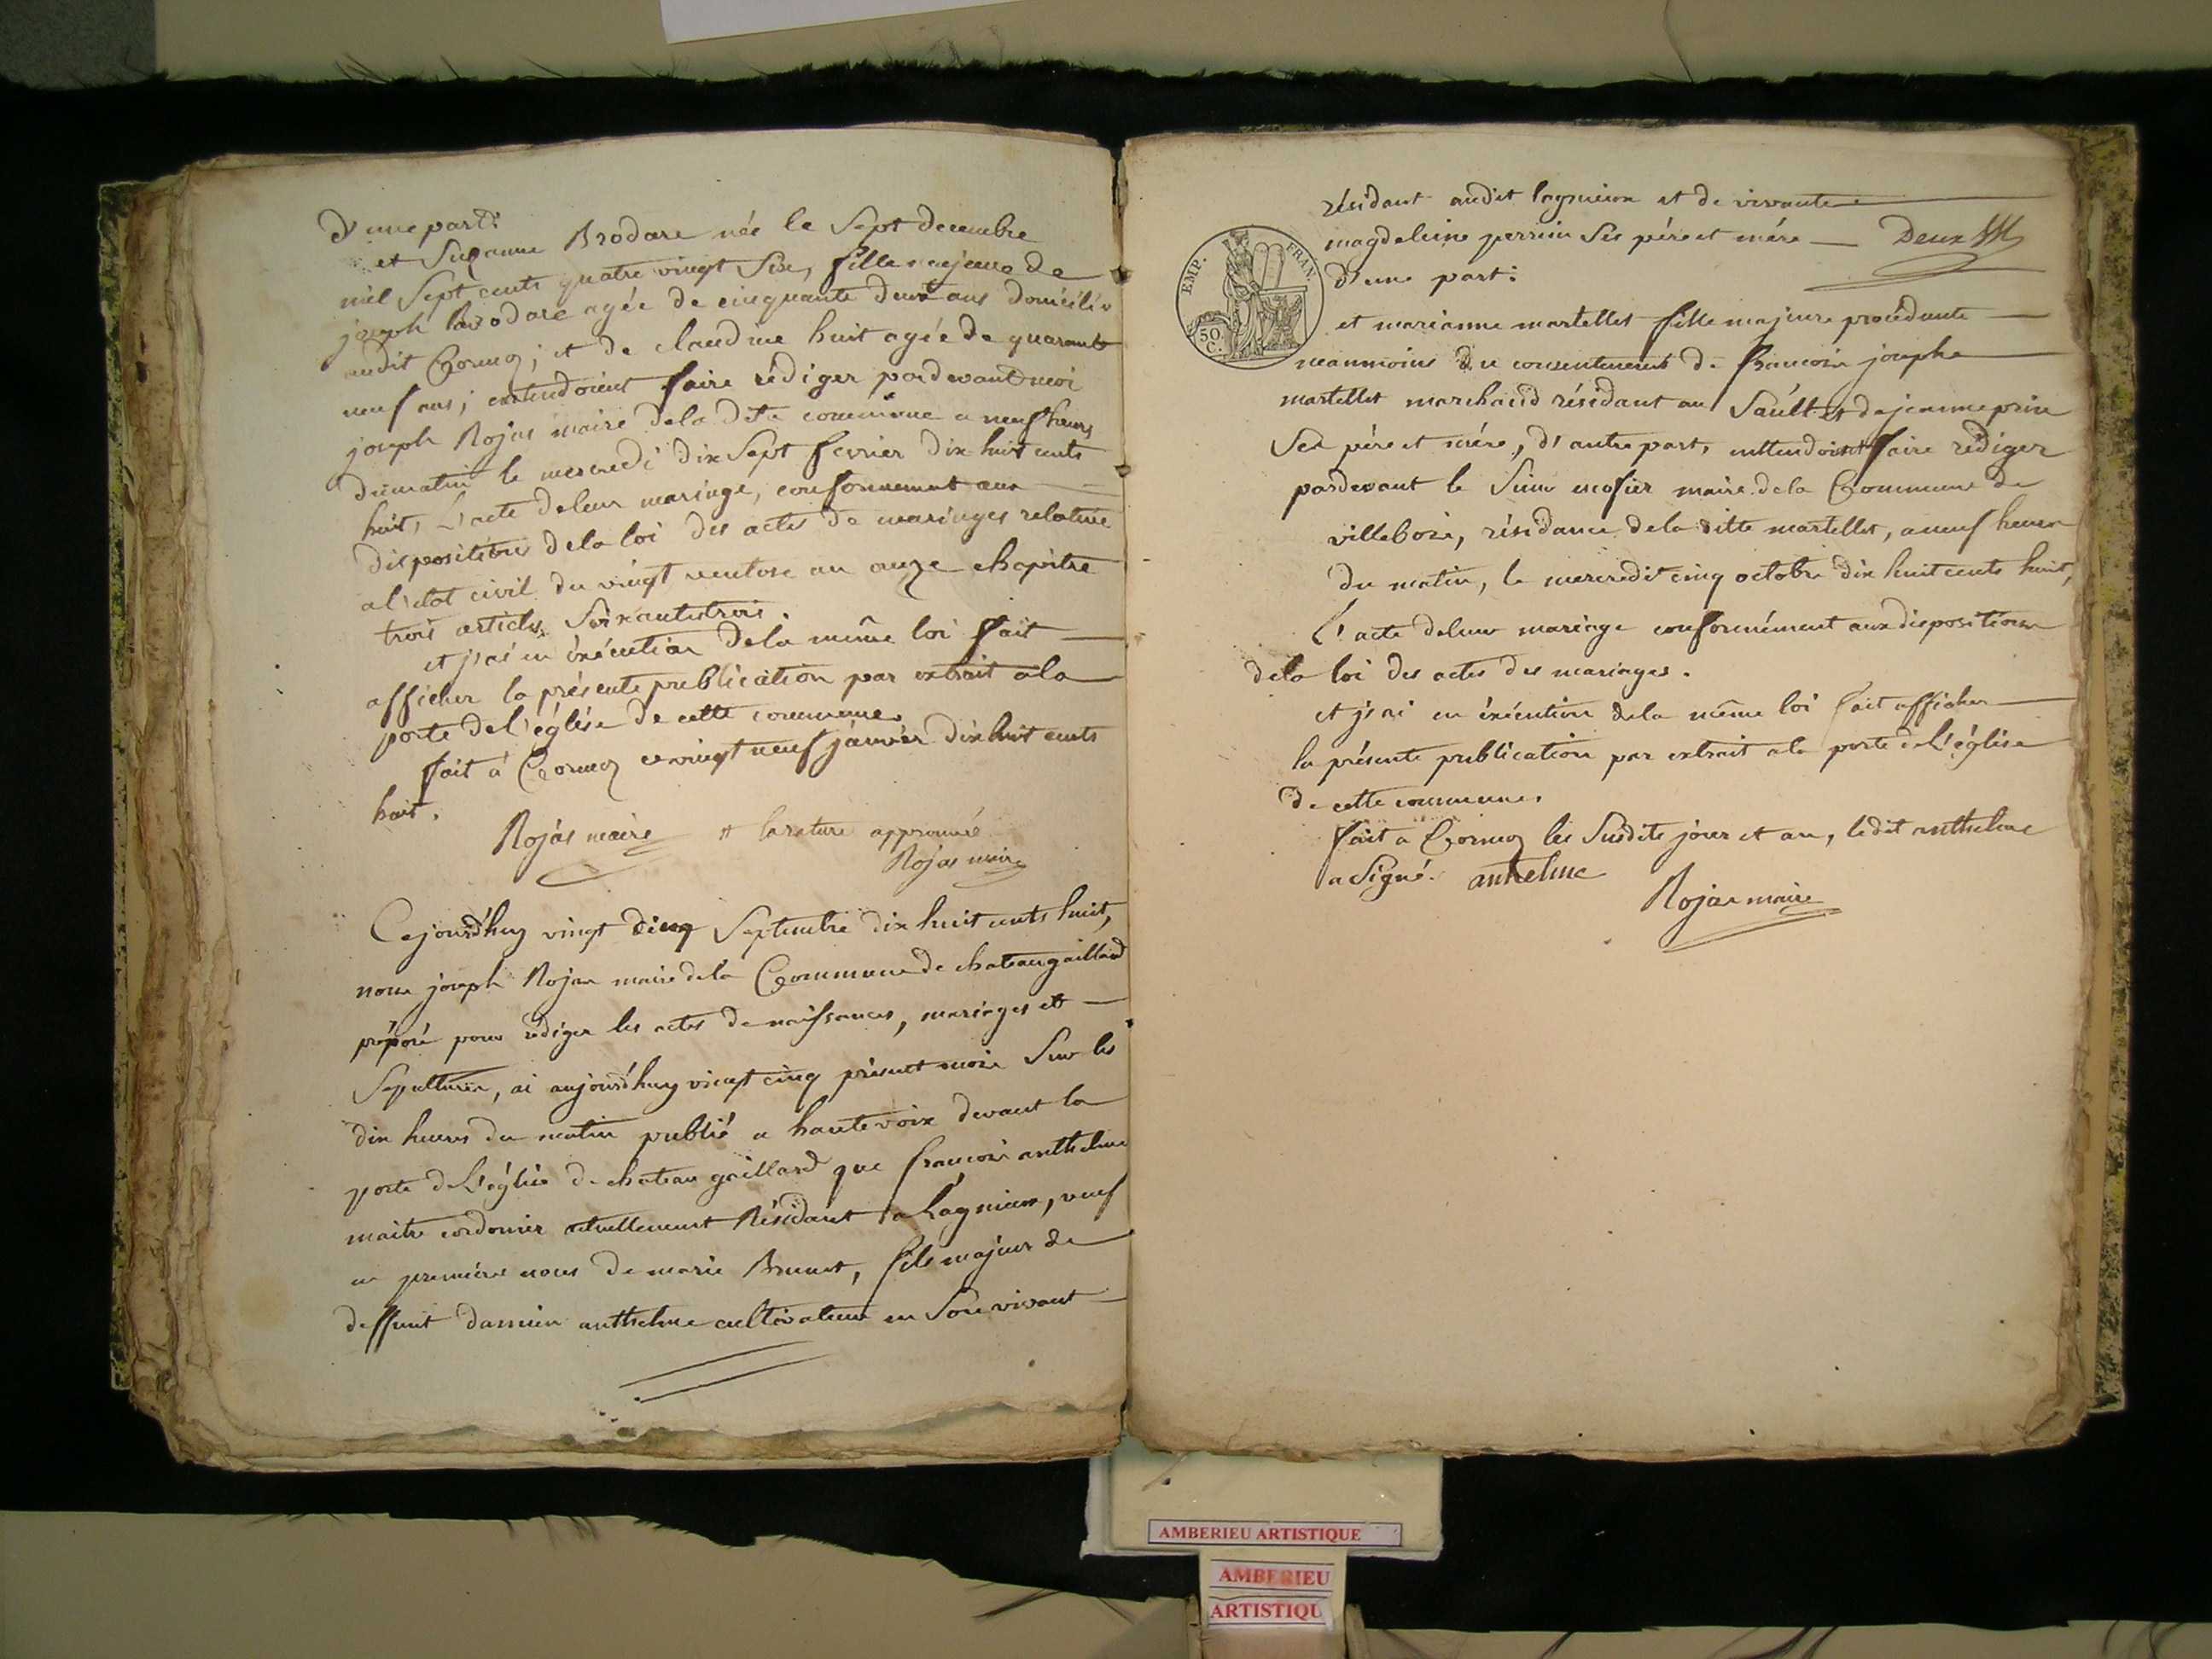 d'une part:
et Suzanne Brodare née le Sept decembre
mil Sept cents quatre vingt Six, fille majeure de
joseph Brodare agée de cinquante deux ans domicilés
audit Cormoz; et de claudine huit agée de quarante
neuf ans; entendoient faire rédiger pardevant moi
joseph Rojas maire de la dite commune a neuf heures
du matin le mercredi dix Sept fevrier dix huit cents
huit, L'acte de leur mariage, conformement aux
dispositions de la loi des actes de mariages relative
al'etat civil du vingt ventose an onze chapitre
trois article Soixantetrois.
et j'ai en éxécution de la même loi fait
afficher la présente publication par extrait a la
porte de l'église de cette commune.
fait a Cormoz ce vingt neuf janvier dix huit cents
huit.
Rojas maire # la rature approuvée
Rojas maire
Cejourd'huy vingt cinq Septembre dix huit cents huit,
nous joseph Rojas maire de la Commune de chateaugaillard
préposé pour rédiger les actes de naissances, mariages et
Sepultures, ai aujourd'huy vingt cinq présent mois Sur les
dix heures du matin publié a haute voix devant la
porte de L'église de chateau gaillard que francois anthelme
maitre cordonier actuellement Résidant a Lagnieux, veuf
en premiéres noces de marie Brunet, fils majeur de
deffunt damien anthelme cultivateur en Son vivant
résidant audit lagnieux et de vivante
magdeleine perrin Ses pére et mére — Deux
d'une part:
EMP. FRAN.
50 C.
et marianne martellet fille majeure procédante
neanmoins du consentement de francois josephe
martellet marchand résidant au Sault et de jeanne prin
Ses pére et mére, d'autre part, enttendoient faire rédiger
pardevant le Sieur escofier maire de la Commune de
villebois, résidance de la ditte martellet, a neuf heures
du matin, le mercredit cinq octobre dix huit cents huit,
L'acte de leur mariage conformément aux dispositions
de la loi des actes des mariages.
et j'ai en éxécution de la même loi fait afficher
la présente publication par extrait a la porte de L'église
de cette commune.
fait a Cormoz les Susdits jour et an, ledit anthelme
a Signé. anthelme
Rojas maire
AMBERIEU ARTISTIQUE
AMBERIEU
ARTISTIQU